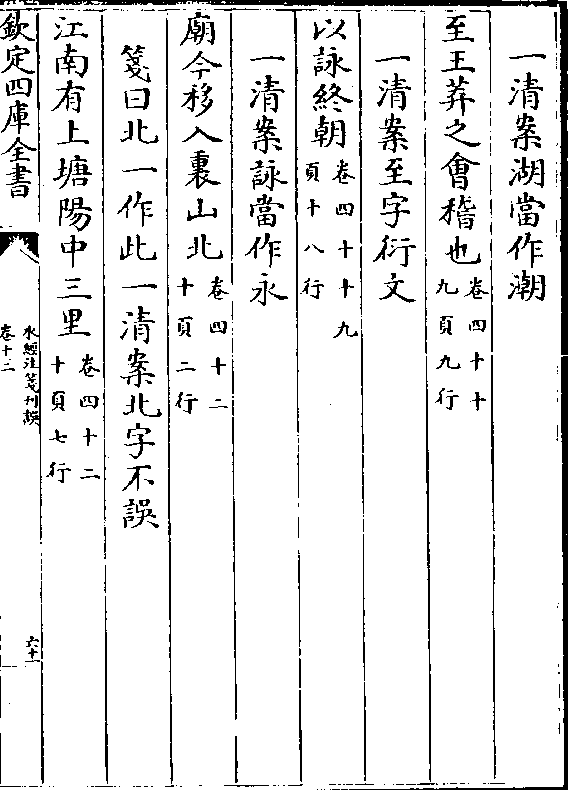 一清案湖當作潮
至王莽之會稽也卷四十十九頁九行
一清案至字衍文
以詠終朝卷四十十九頁十八行
一清案詠當作永
廟今移入裏山北卷四十二十頁二行
箋曰北一作此一清案北字不誤
江南有上塘陽中三里卷四十二十頁七行
欽定四庫全書
水經注箋刊誤
卷十二
六十一